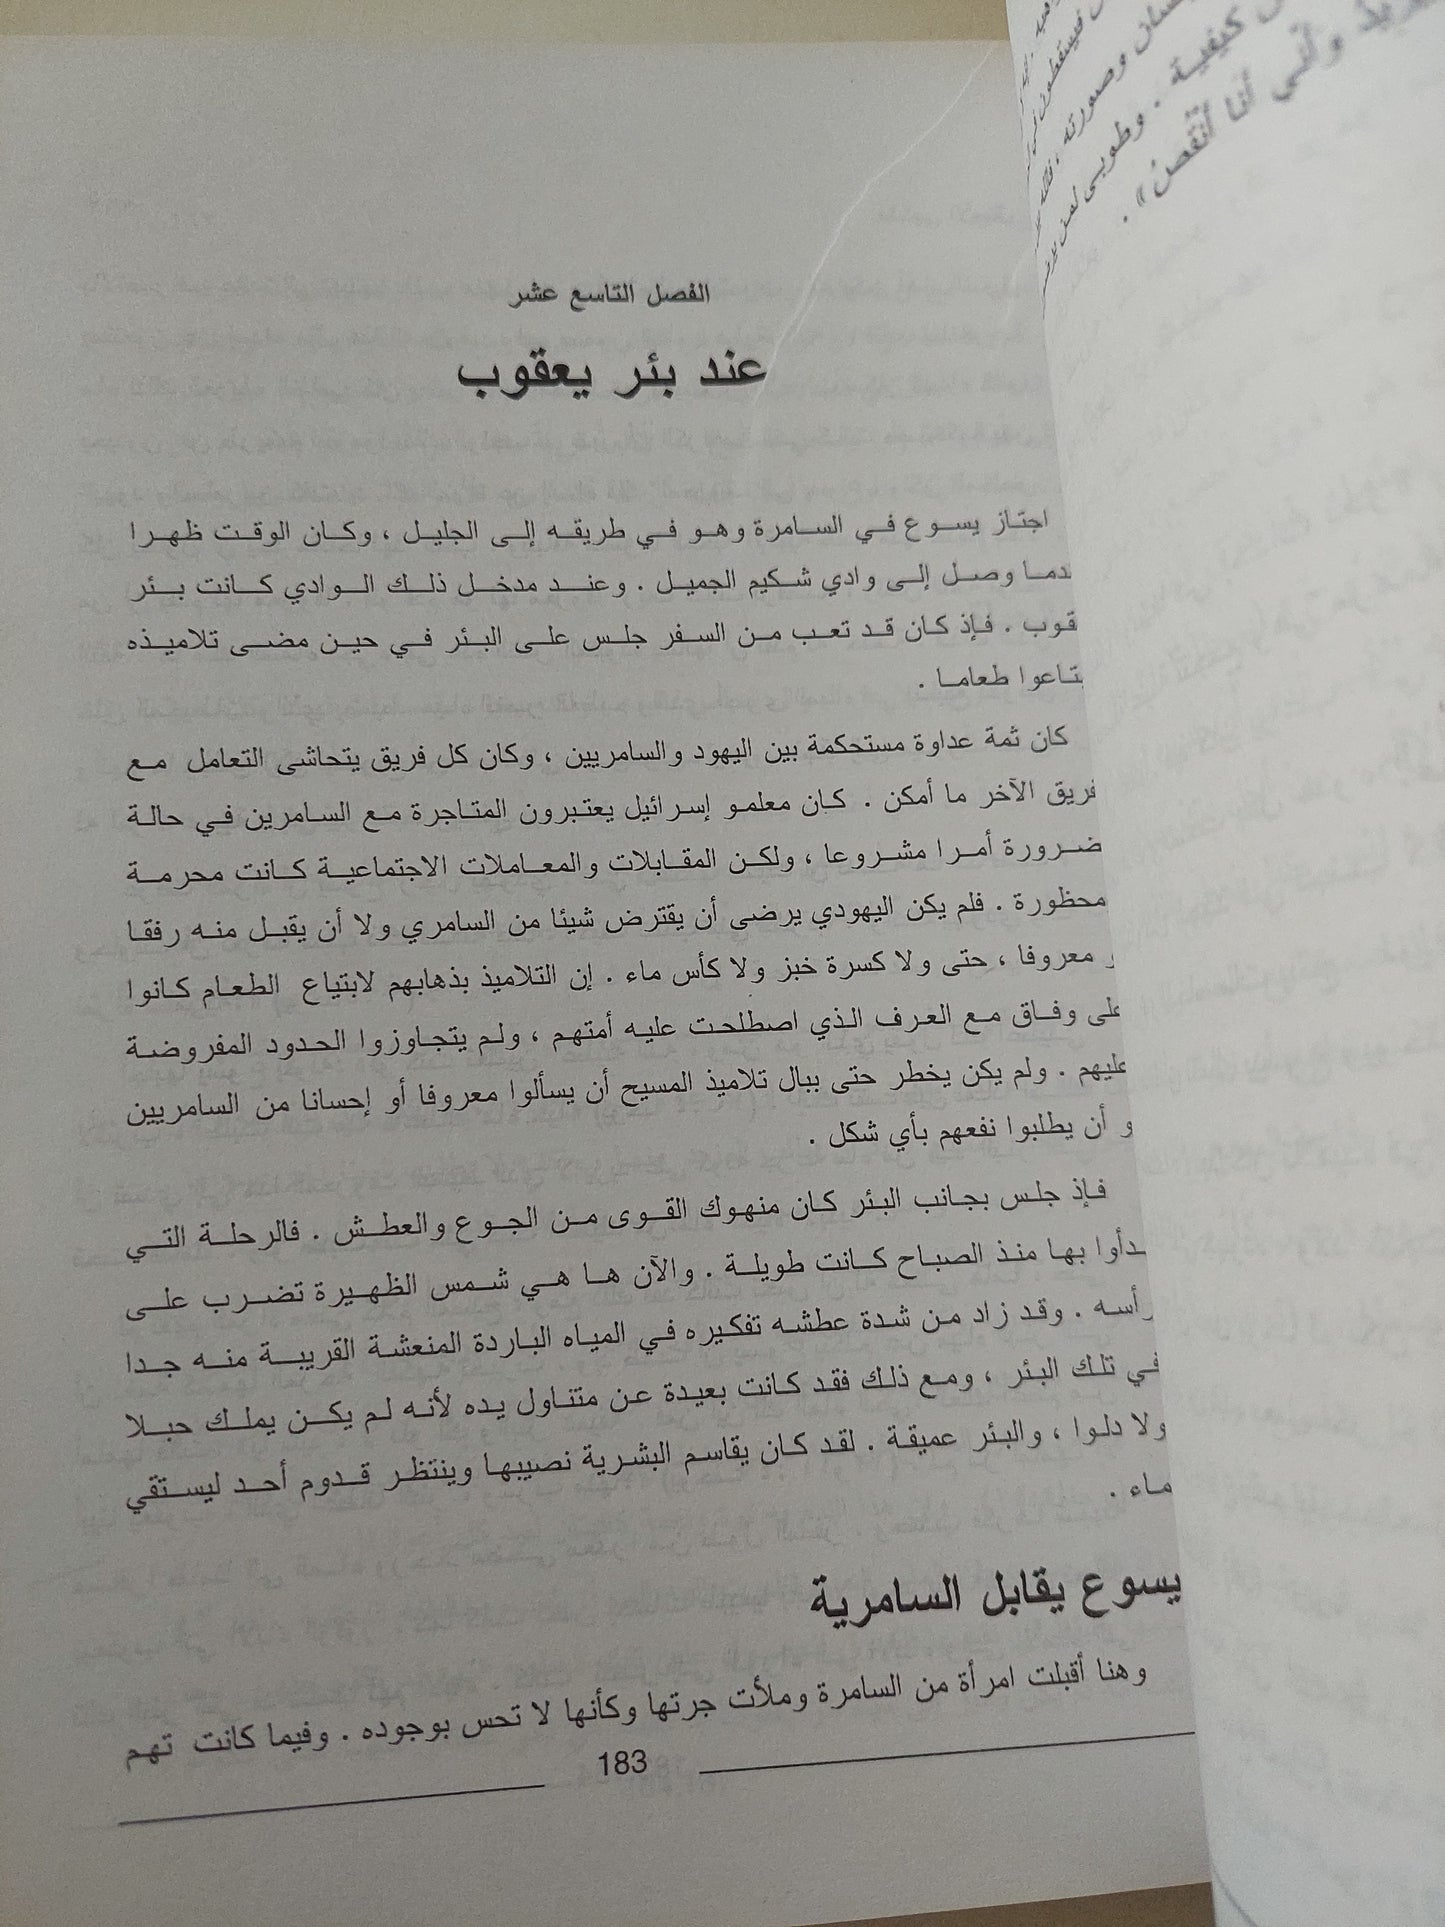 الفصل التاسع عشر
عند بئر يعقوب
اجتاز يسوع في السامرة وهو في طريقه إلى الجليل ، وكان الوقت ظهرا
دما وصل إلى وادي شكيم الجميل . وعند مدخل ذلك الوادي كانت بئر
قوب . فإذ كان قد تعب من السفر جلس على البئر في حين مضى تلاميذه
بتاعوا طعاما .
كان ثمة عداوة مستحكمة بين اليهود والسامريين ، وكان كل فريق يتحاشى التعامل مع
فريق الآخر ما أمكن . كان معلمو إسرائيل يعتبرون المتاجرة مع السامرين في حالة
ضرورة أمرا مشروعا ، ولكن المقابلات والمعاملات الاجتماعية كانت محرمة
محظورة . فلم يكن اليهودي يرضى أن يقترض شيئا من السامري ولا أن يقبل منه رفقا
و معروفا ، حتى ولا كسرة خبز ولا كأس ماء . إن التلاميذ بذهابهم لابتياع الطعام كانوا
على وفاق مع العرف الذي اصطلحت عليه أمتهم ، ولم يتجاوزوا الحدود المفروضة
عليهم . ولم يكن يخطر حتى ببال تلاميذ المسيح أن يسألوا معروفا أو إحسانا من السامريين
و أن يطلبوا نفعهم بأي شكل .
فإذ جلس بجانب البئر كان منهوك القوى من الجوع والعطش . فالرحلة التي
دأوا بها منذ الصباح كانت طويلة . والآن ها هي شمس الظهيرة تضرب على
رأسه . وقد زاد من شدة عطشه تفكيره في المياه الباردة المنعشة القريبة منه جدا
في تلك البئر ، ومع ذلك فقد كانت بعيدة عن متناول يده لأنه لم يكن يملك حبلا
ولا دلوا ، والبئر عميقة . لقد كان يقاسم البشرية نصيبها وينتظر قدوم أحد ليستقي
ماء .
يسوع يقابل السامرية
وهنا أقبلت امرأة من السامرة وملأت جرتها وكأنها لا تحس بوجوده . وفيما كانت تهم
183
فيسقطون
سان وصورته ،
كيفية . وطوبى لمن
وأني أنا أنقصُ» .